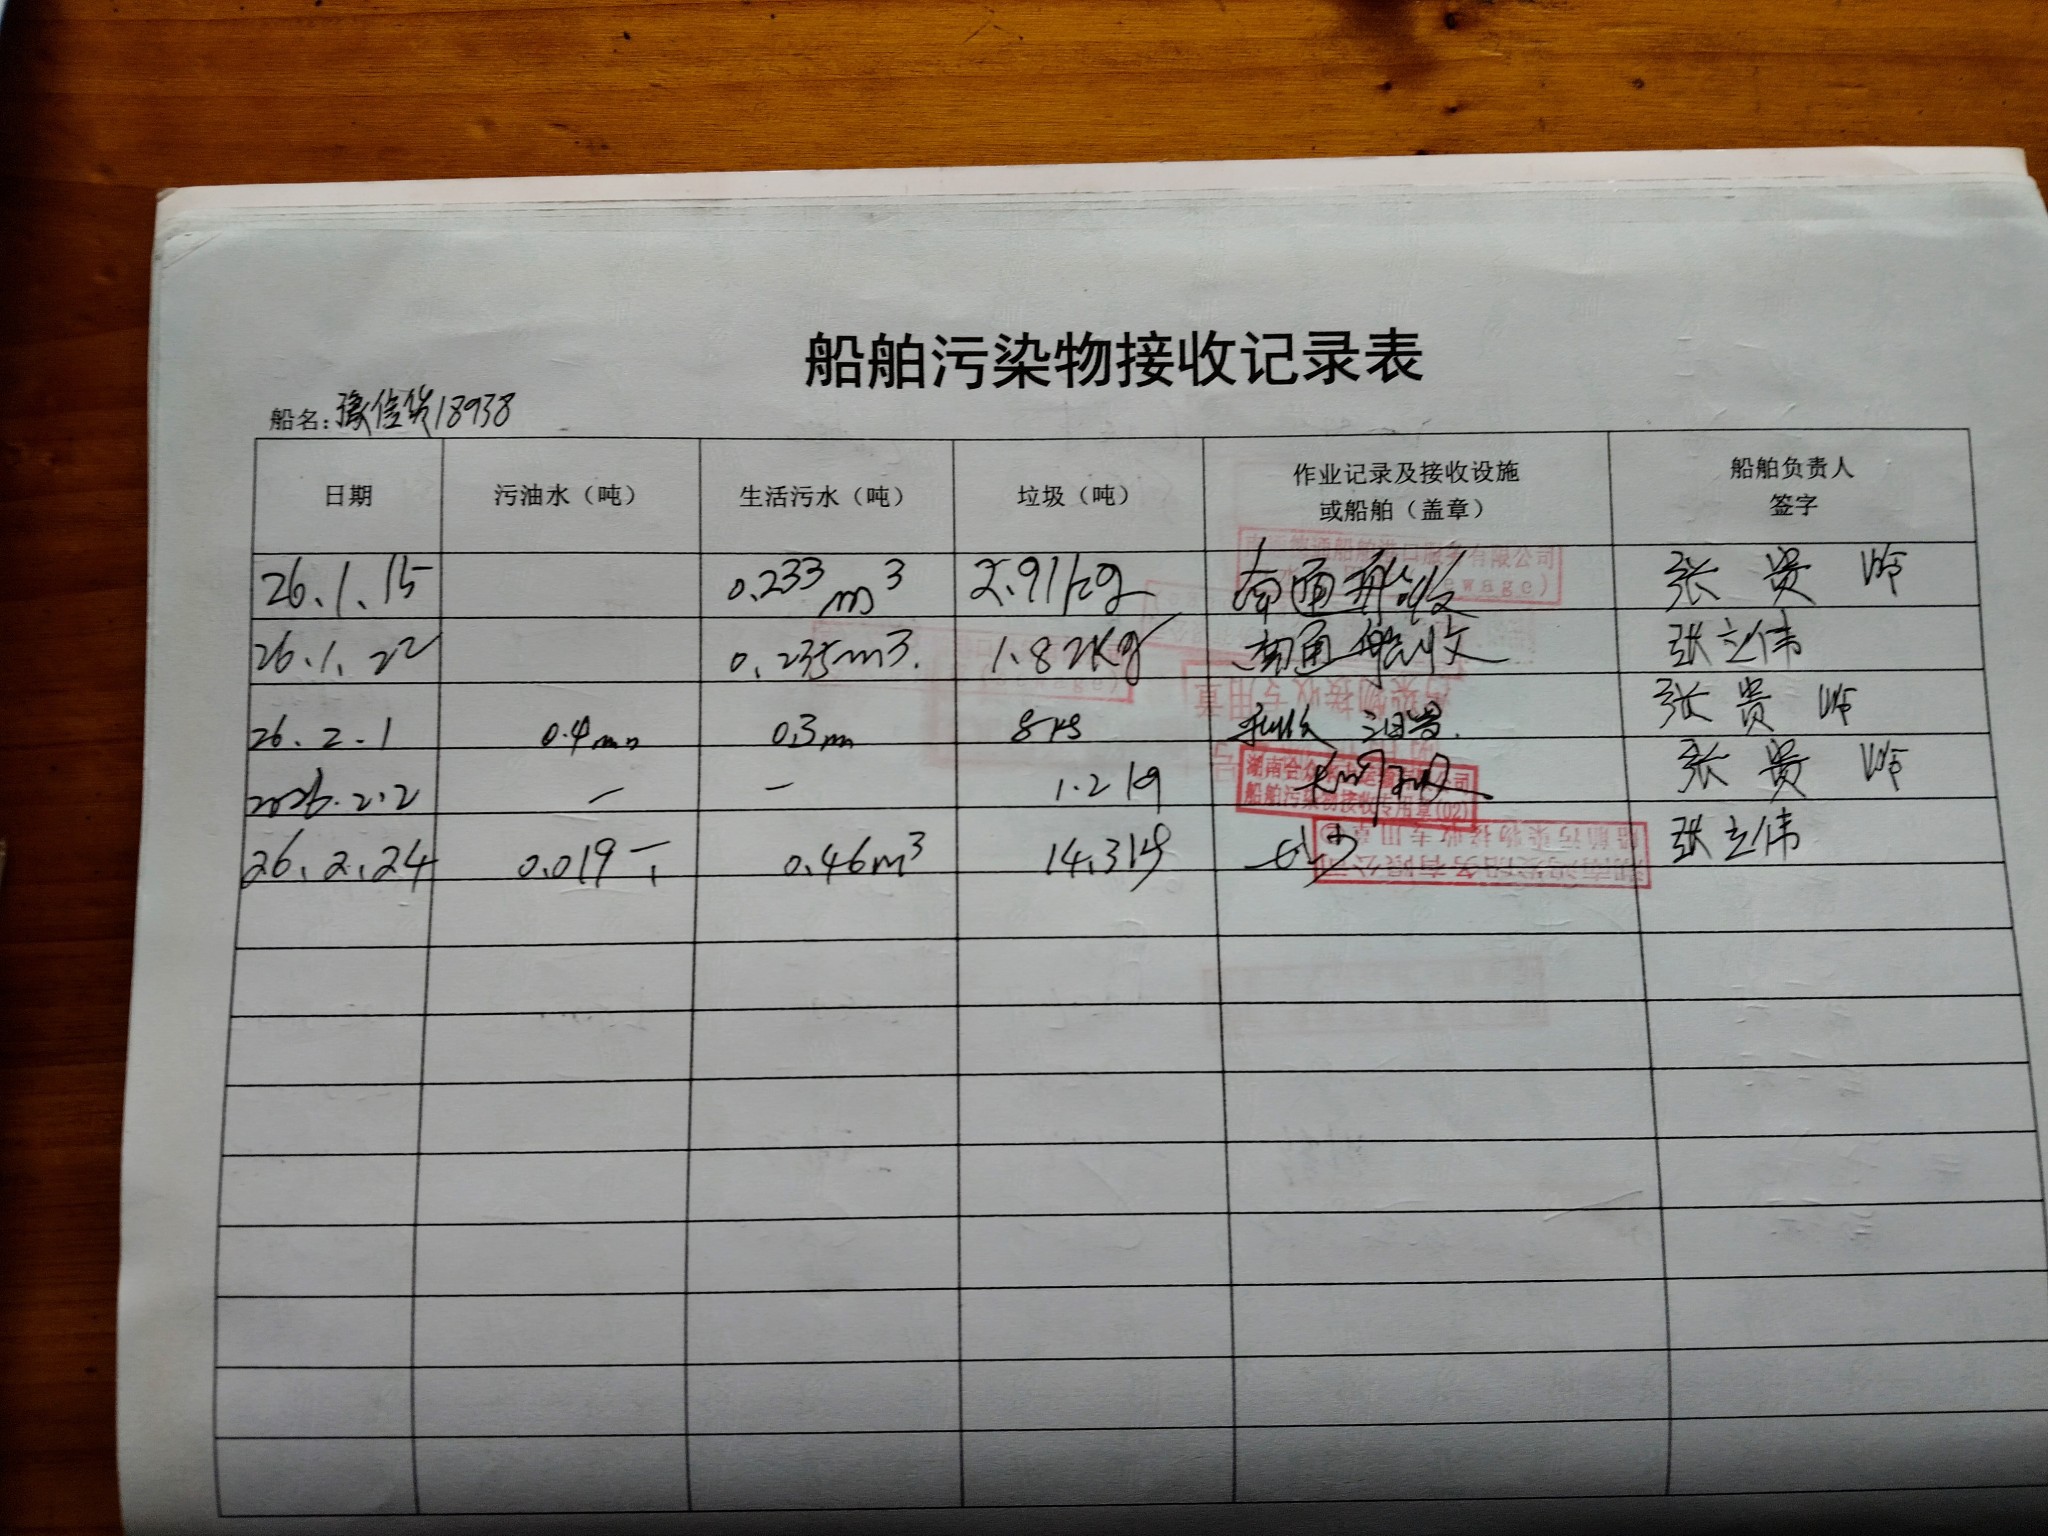 船舶污染物接收记录表
船名：豫信货18938
日期 污油水（吨） 生活污水（吨） 垃圾（吨） 作业记录及接收设施或船舶（盖章） 船舶负责人签字
26.1.15 0.233m3 2.91kg 南通 收 张贵师
26.1.22 0.235m3. 1.82Kg 南通 收 张立伟
26.2.1 0.4m 0.3m 8kg 张贵师
2026.2.2 — — 1.2kg 张贵师
湖南合众 公司
船舶污染物接收专用章(02)
26.2.24 0.019 0.46m3 14.3kg 张立伟
船舶污染物接收专用章
船务有限公司